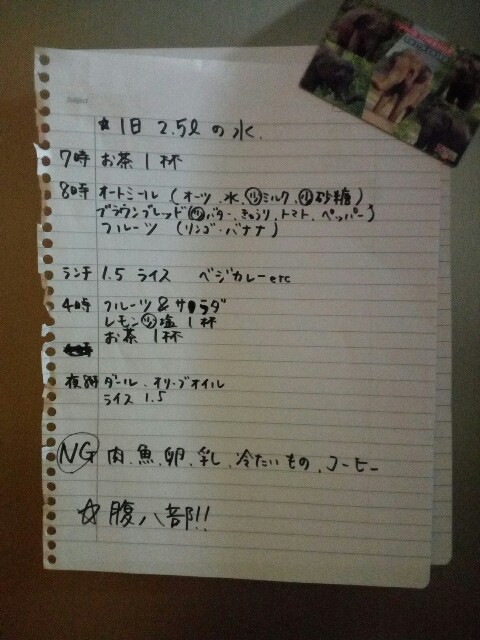 Subject
☆1日 2.5ℓの水.
7時 お茶1杯
8時 オートミール (オーツ、水、㋷ミルク、㋷砂糖)
ブラウンブレッド(㋷バター、きゅうり、トマト、ペッパー)
フルーツ (リンゴ・バナナ)
ランチ 1.5 ライス ベジカレーetc
4時 フルーツ&サラダ
レモン㋷塩 1杯
お茶 1杯
夜8時 ダール、オリーブオイル
ライス 1.5
NG 肉、魚、卵、乳、冷たいもの、コーヒー
☆腹八部!!